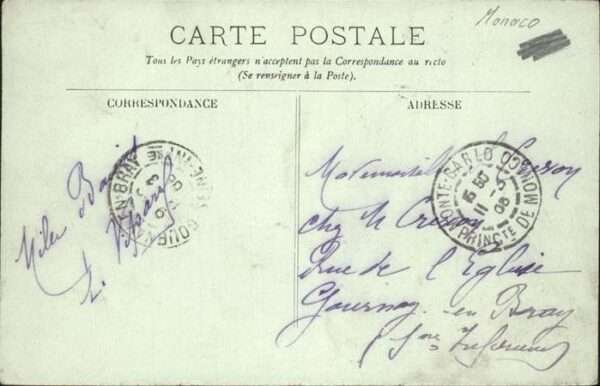 Monaco
CARTE POSTALE
Tous les Pays étrangers n'acceptent pas la Correspondance au recto
(Se renseigner à la Poste).
CORRESPONDANCE
ADRESSE
MONTE-CARLO
15 50
11 -5
08
PRINCTE DE MONACO
GOURNAY-EN-BRAY
SEINE-INFRE
Mademoiselle
chez M
Rue de l'Eglise
Gournay en Bray
Sne Inférieure